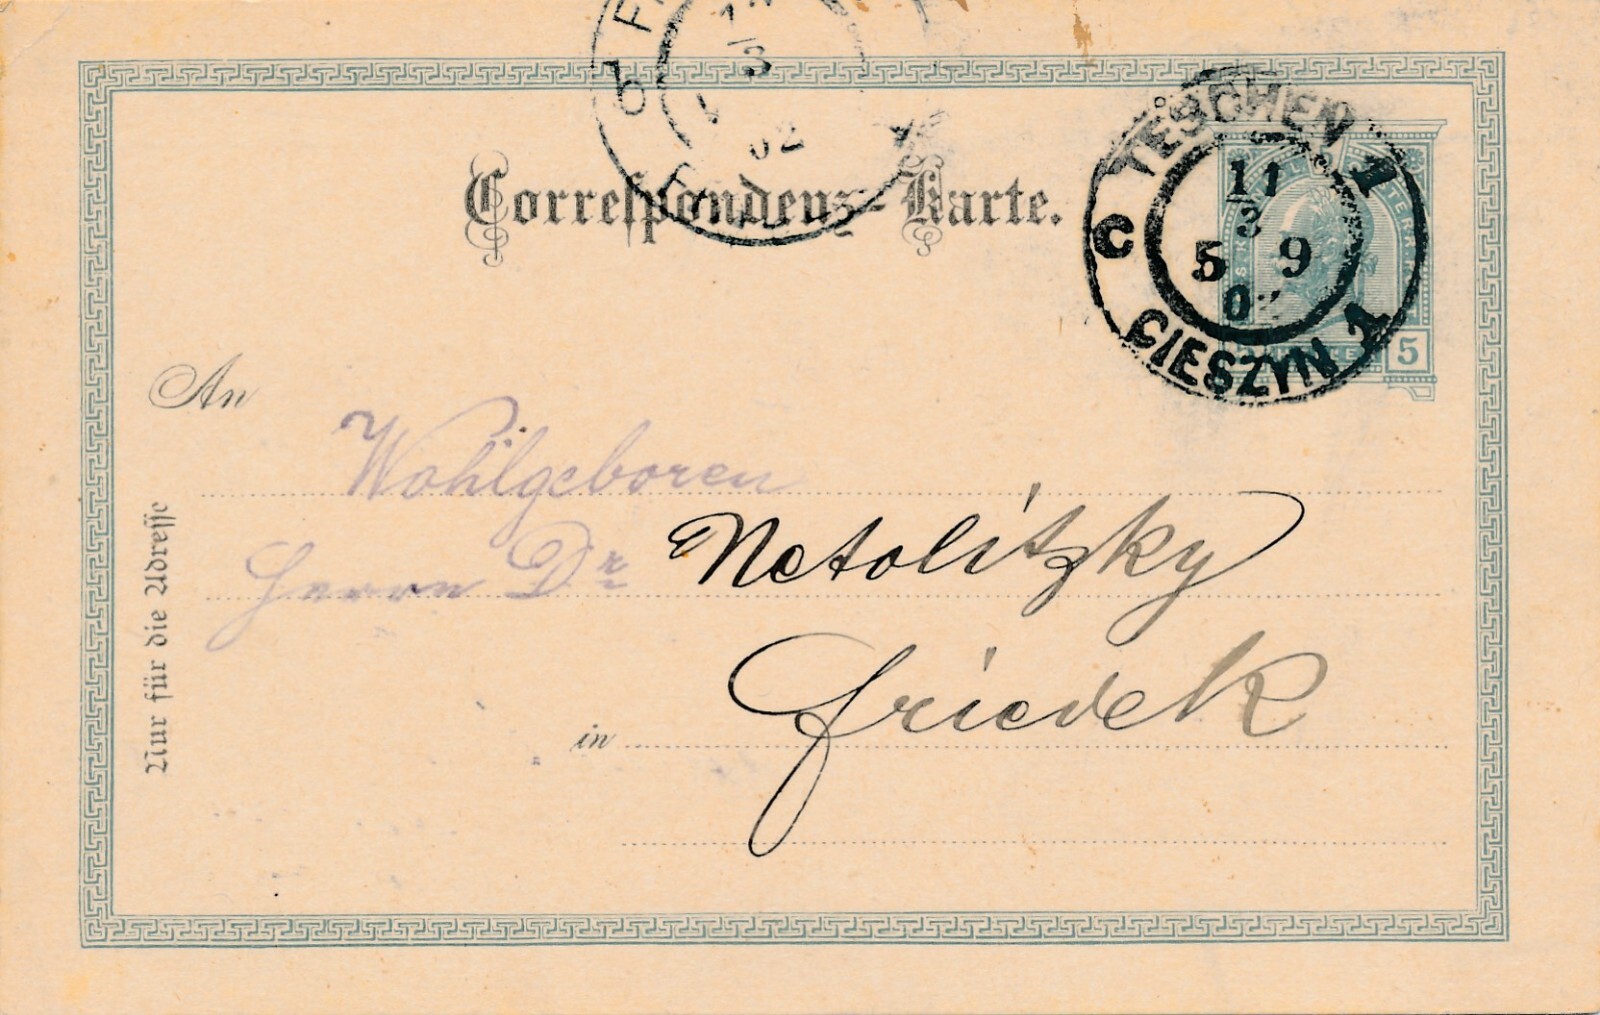 12
3
02
Correspondenz-Karte.
TESCHEN 1
11
3
5 9
C
CIESZYN 1
5
An
Wohlgeboren
Herrn Dr Netolitzky
in Friedek
Nur für die Adresse